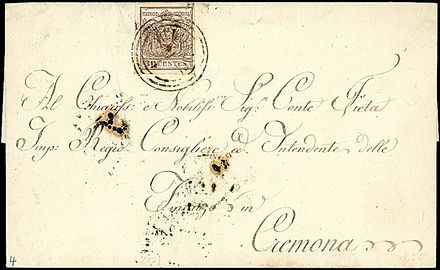 30 CENTES
Al Chiariss: e Nobiliss: Sig: Conte
Imp: Regio Consigliere ed Intendente delle
Finanze in
Cremona
4